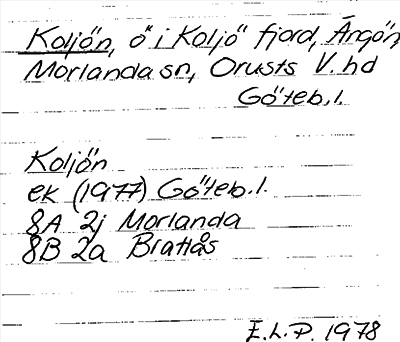 Koljön, ö i Koljö fjord, Ängön,
Morlanda sn, Orusts V. hd
Göteb. l.
Koljön
ek (1977) Göteb. l.
8A 2j Morlanda
8B 2a Bratlås
E.L.P. 1978